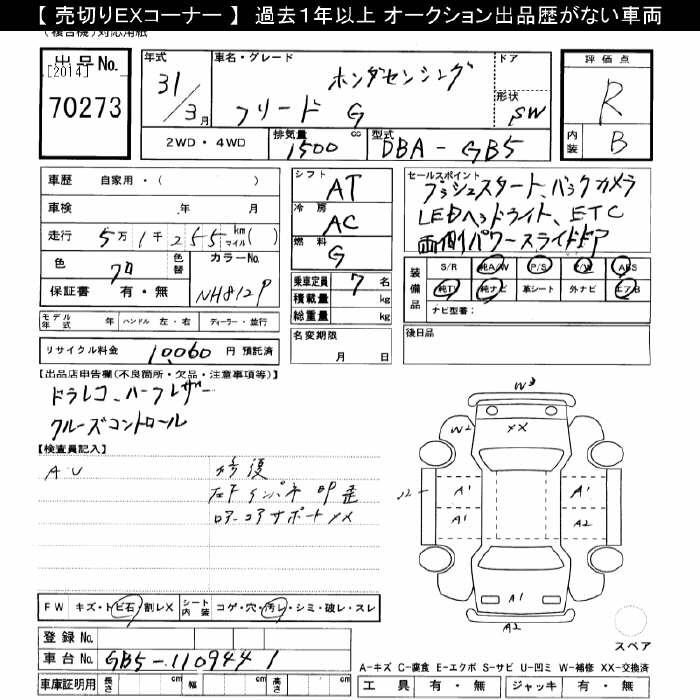 【 売切りEXコーナー 】 過去１年以上 オークション出品歴がない車両
(複合機)対応用紙
出品No.
[2014]
70273
年式
31/3月
車名・グレード
ホンダセンシング
フリード G
ドア
形状 SW
評価点
R
内装 B
2WD・4WD
排気量 1500 cc
型式 DBA-GB5
車歴 自家用・( )
車検 年 月
走行 5万1千255 km マイル( )
色 クロ 色替
カラーNo. NH812P
保証書 有・無
シフト AT
冷房 AC
燃料 G
乗車定員 7 名
積載量 kg
総重量 kg
セールスポイント
プッシュスタート、バックカメラ
LEDヘッドライト、ETC
両側パワースライドドア
装備品
S/R 純A/W P/S P/W ABS
純TV 純ナビ 革シート 外ナビ エアB
ナビ型番：
モデル年式 年 ハンドル 左・右 ディーラー・並行
名変期限
月 日
後日品
リサイクル料金 10,060 円 預託済
【出品店申告欄(不良箇所・欠品・注意事項等)】
ドラレコ、ハーフレザー
クルーズコントロール
【検査員記入】
A・U
修復
インパネ 凹歪
コアサポートXX
W3
W2
XX
A1
A1
A1
A2
A1
A2
FW キズ・トビ石・割レX シート内装 コゲ・穴・汚レ・シミ・破レ・スレ
登録No.
車台No. GB5-1109441
車庫証明用 長さ cm 幅 cm 高さ cm
スペア
A-キズ C-腐食 E-エクボ S-サビ U-凹ミ W-補修 XX-交換済
工具 有・無 ジャッキ 有・無